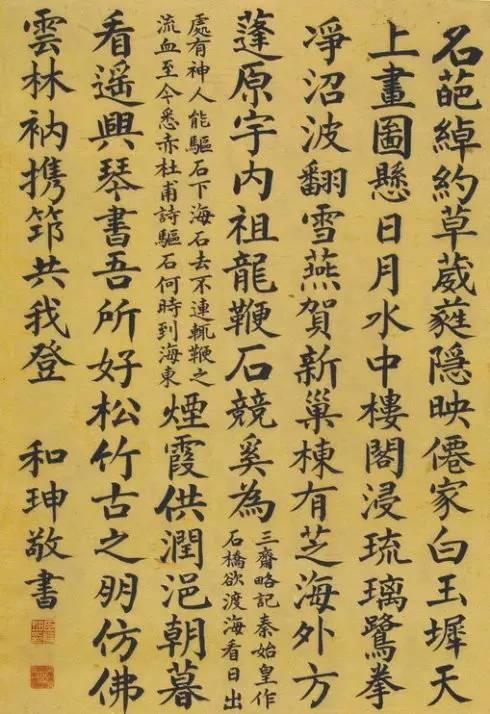 名葩綽約草葳蕤隱映僊家白玉墀天
上畫圖懸日月水中樓閣浸琉璃鷺拳
凈沼波翻雪燕賀新巢棟有芝海外方
蓬原宇內祖龍鞭石競奚為
三齋略記秦始皇作
石橋欲渡海看日出
處有神人能驅石下海石去不連輒鞭之
流血至今悉赤杜甫詩驅石何時到海東
煙霞供潤浥朝暮
看遙興琴書吾所好松竹古之朋仿佛
雲林衲携筇共我登 和珅敬書